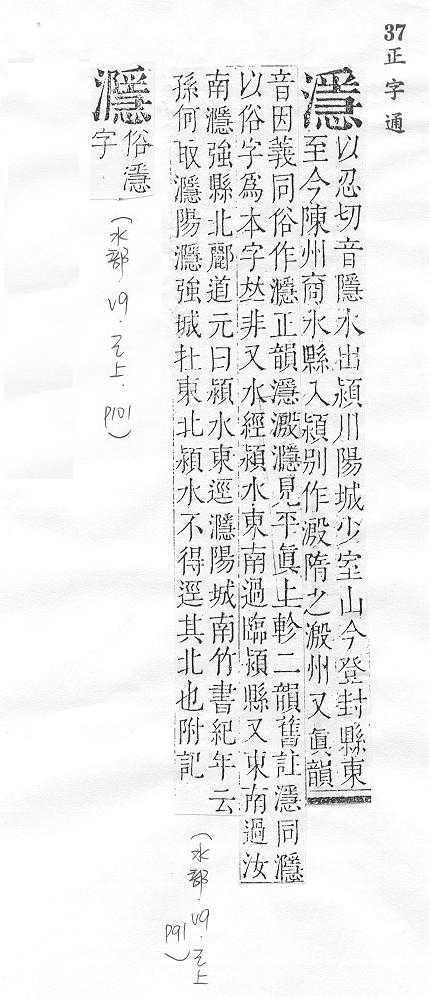 37正字通
㶏
以忍切音隱水出潁川陽城少室山今登封縣東
至今陳州商水縣入潁別作溵隋之溵州又眞韻
音因義同俗作濦正韻㶏溵濦見平眞上軫二韻舊註㶏同濦
以俗字爲本字𠀤非又水經潁水東南過臨潁縣又東南過汝
南濦強縣北酈道元曰潁水東逕濦陽城南竹書紀年云
孫何取濦陽濦強城在東北潁水不得逕其北也附記
(水部.V9.巳上
P91)
濦
俗㶏
字
(水部.V9.巳上.
P101)